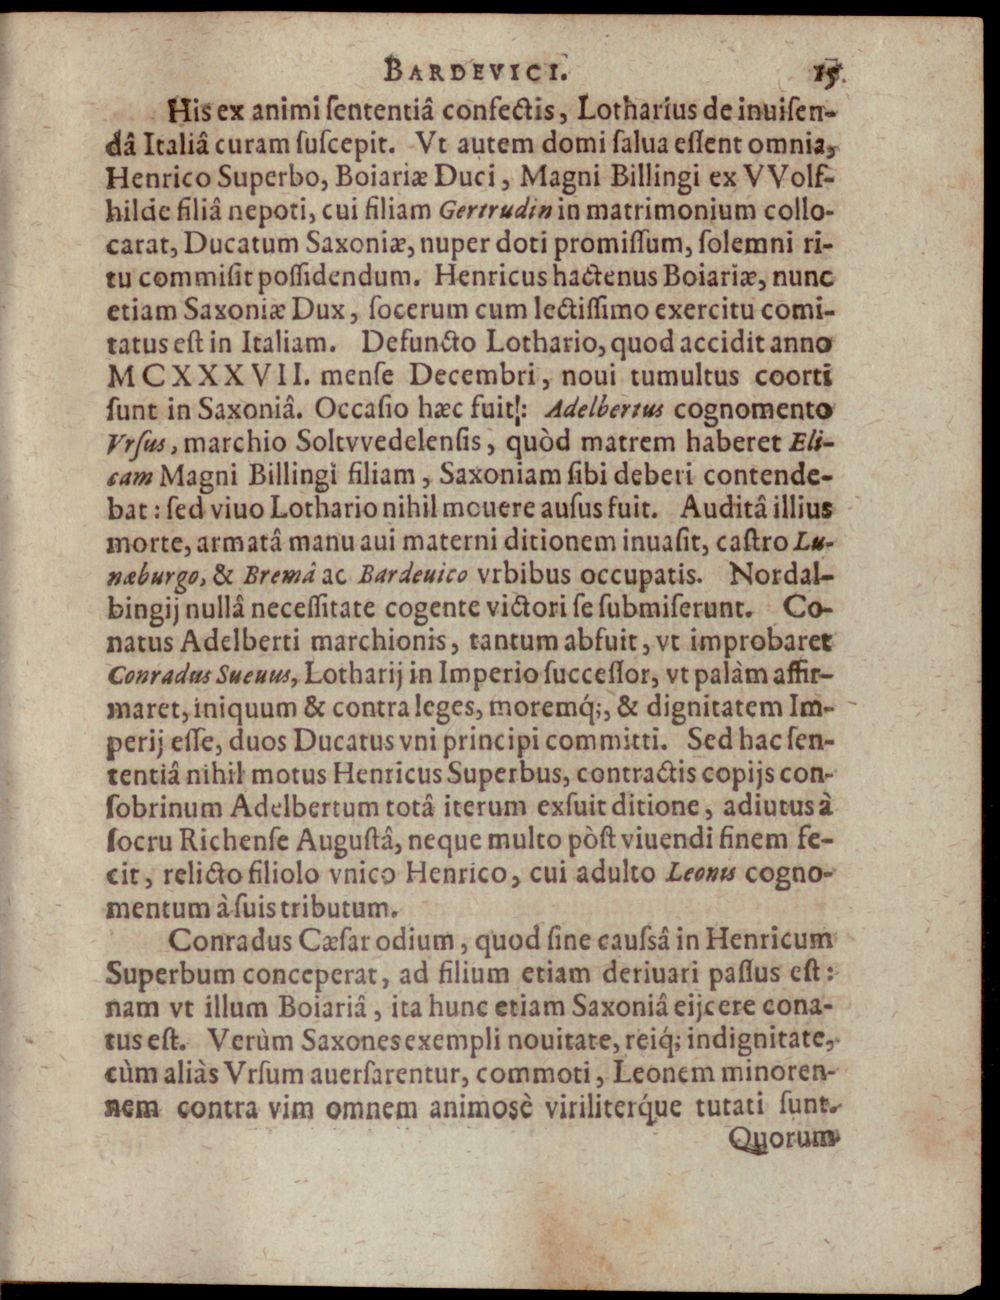 BARDEVICI. 15
His ex animi ſententiâ confectis, Lotharius de inuiſen-
dâ Italiâ curam ſuſcepit. Vt autem domi ſalua eſſent omnia,
Henrico Superbo, Boiariæ Duci, Magni Billingi ex VVolf-
hilde filiâ nepoti, cui filiam Gertrudin in matrimonium collo-
carat, Ducatum Saxoniæ, nuper doti promiſſum, ſolemni ri-
tu commiſit poſſidendum. Henricus hactenus Boiariæ, nunc
etiam Saxoniæ Dux, ſocerum cum lectiſſimo exercitu comi-
tatus eſt in Italiam. Defuncto Lothario, quod accidit anno
MCXXXVII. menſe Decembri, noui tumultus coorti
ſunt in Saxoniâ. Occaſio hæc fuit: Adelbertus cognomento
Vrſus, marchio Soltvvedelenſis, quòd matrem haberet Eli-
cam Magni Billingi filiam, Saxoniam ſibi deberi contende-
bat: ſed viuo Lothario nihil mouere auſus fuit. Auditâ illius
morte, armatâ manu aui materni ditionem inuaſit, caſtro Lu-
næburgo, & Bremâ ac Bardeuico vrbibus occupatis. Nordal-
bingij nullâ neceſſitate cogente victori ſe ſubmiſerunt. Co-
natus Adelberti marchionis, tantum abfuit, vt improbaret
Conradus Sueuus, Lotharij in Imperio ſucceſſor, vt palàm affir-
maret, iniquum & contra leges, moremq́;, & dignitatem Im-
perij eſſe, duos Ducatus vni principi committi. Sed hac ſen-
tentiâ nihil motus Henricus Superbus, contractis copijs con-
ſobrinum Adelbertum totâ iterum exſuit ditione, adiutus à
ſocru Richenſe Auguſtâ, neque multo pòſt viuendi finem fe-
cit, relicto filiolo vnico Henrico, cui adulto Leonis cogno-
mentum à ſuis tributum.
Conradus Cæſar odium, quod ſine cauſsâ in Henricum
Superbum conceperat, ad filium etiam deriuari paſſus eſt:
nam vt illum Boiariâ, ita hunc etiam Saxoniâ eijcere cona-
tus eſt. Verùm Saxones exempli nouitate, reiq́; indignitate,
cùm aliàs Vrſum auerſarentur, commoti, Leonem minoren-
nem contra vim omnem animosè viriliterq́ue tutati ſunt.
Quorum